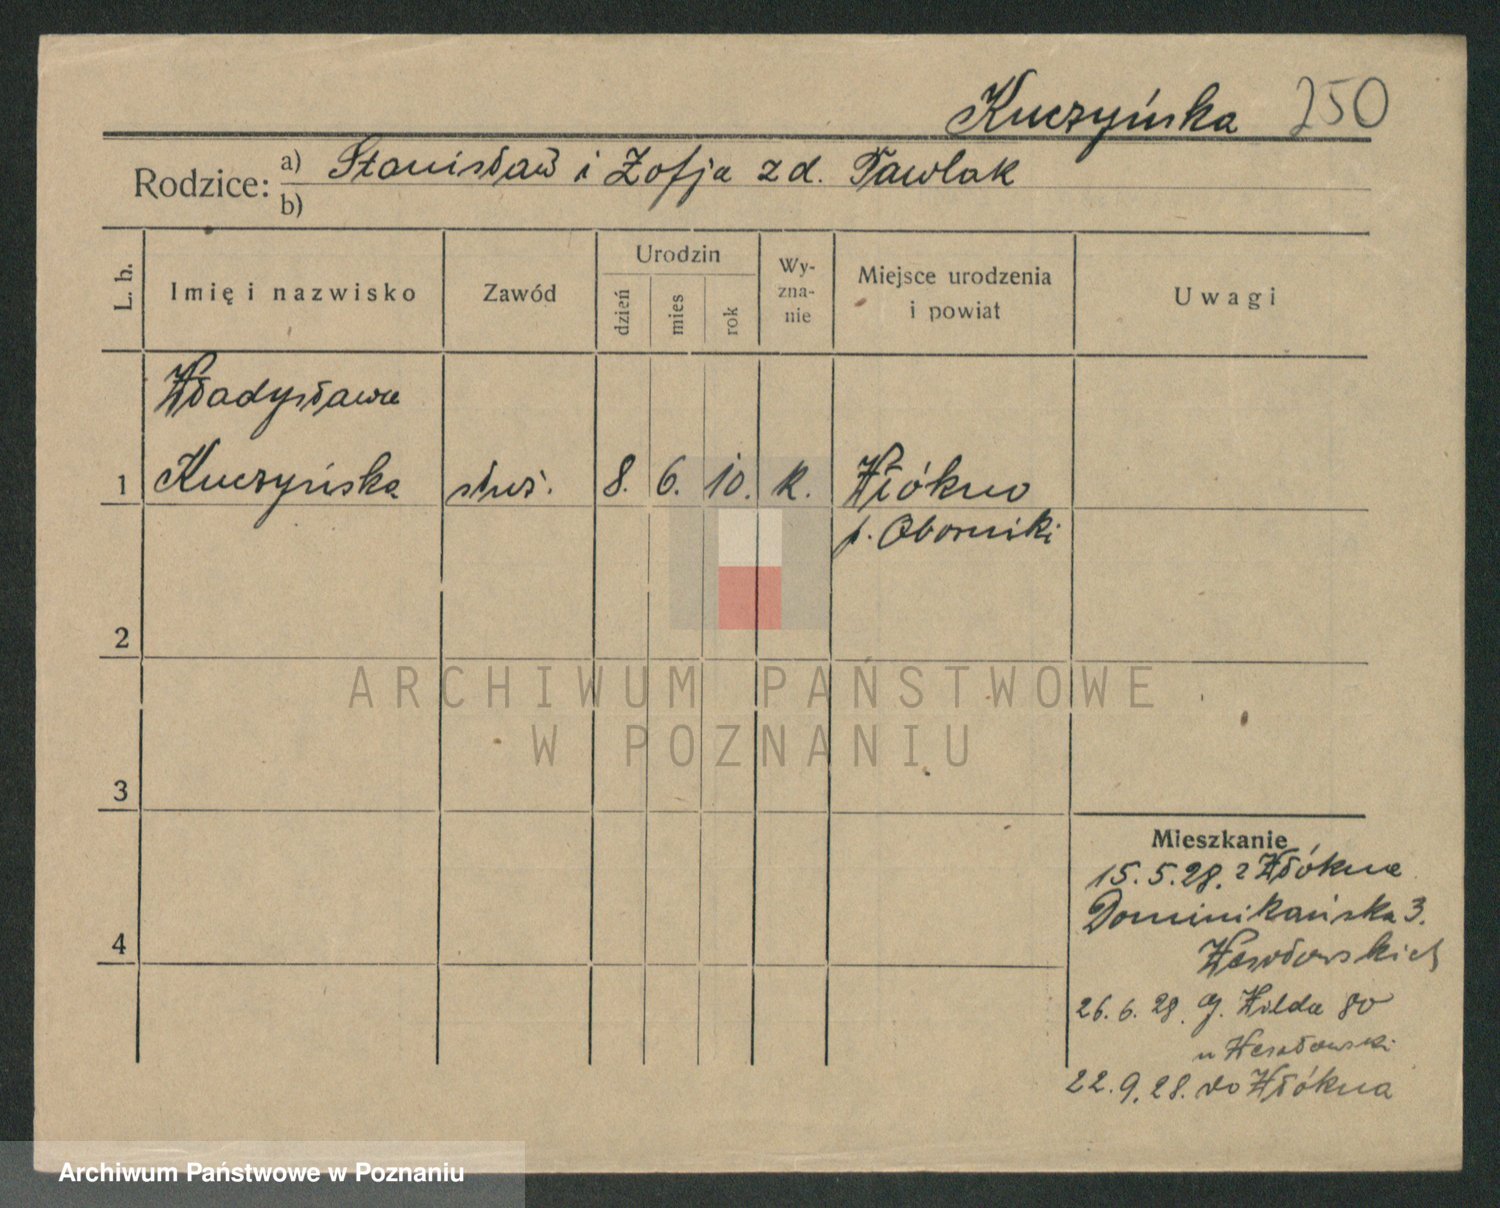 Kuczyńska 250
Rodzice: a) Stanisław i Zofja zd. Pawlak
b)
L. b. Imię i nazwisko Zawód Urodzin dzień mies rok Wy-zna-nie Miejsce urodzenia i powiat Uwagi
Władysława
1 Kuczyńska służ. 8. 6. 10. k. Włókno
p. Oborniki
2
ARCHIWUM PAŃSTWOWE
W POZNANIU
3
Mieszkanie
15.5.28. z Włókna
Dominikańska 3.
4
26.6.28. G. Wilda 80
u Wesołowski
22.9.28. do Włókna
Archiwum Państwowe w Poznaniu